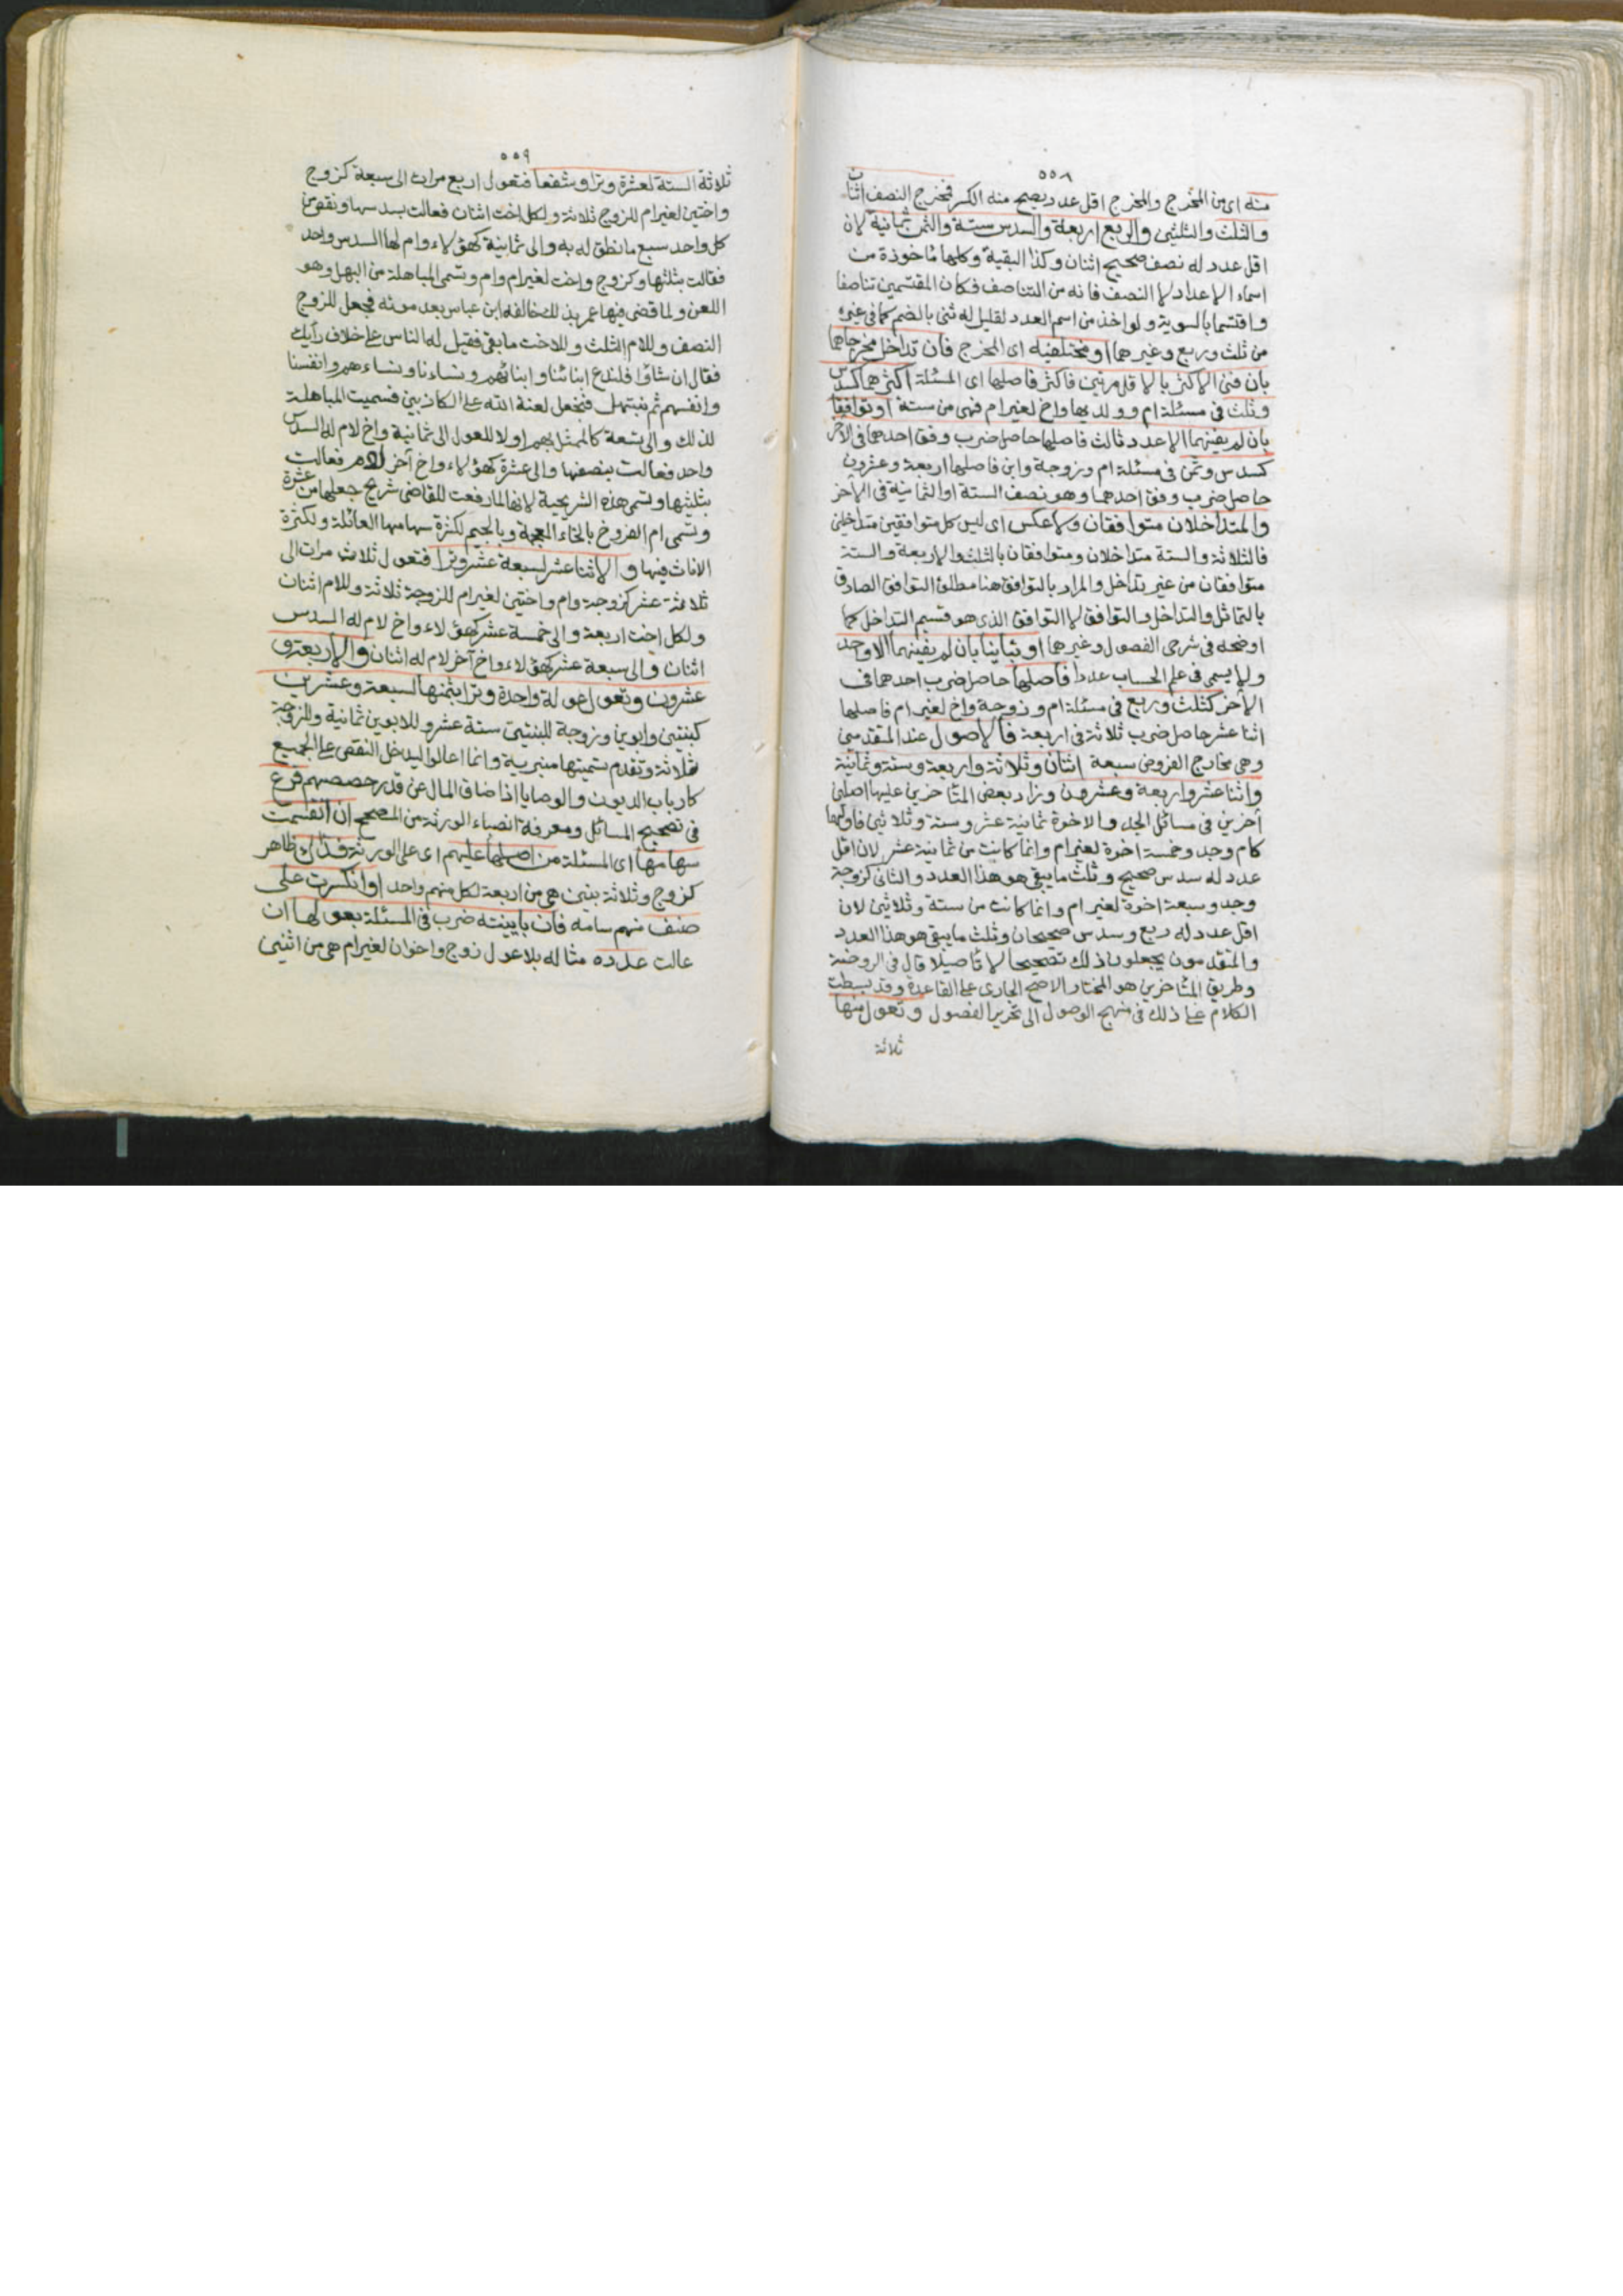 ٥٥٨
منه اى من المخرج والمخرج اقل عدد يصح منه الكسر فمخرج النصف اثنان
والثلث والثلثين والربع اربعة والسدس ستة والثمن ثمانية لان
اقل عدد له نصف صحيح اثنان وكذا البقية وكلها مأخوذة من
اسماء الاعداد الا النصف فانه من التناصف فكان المقتسمين تناصفا
واقتسما بالسوية ولو اخذ من اسم العدد لقليل له ثنى بالضم كما فى غيره
من ثلث وربع وغيرهما او مختلفيه اى المخرج فان تداخل مخرجاهما
بان فنى الاكثر بالاقل مرتين فاكثر فاصلها اى المسئلة اكثرهما كسدس
وثلث فى مسئلة ام وولديها واخ لغير ام فهى من ستة او توافقا
بان لم يفنهما الا عدد ثالث فاصلها حاصل ضرب وفق احدهما فى الآخر
كسدس وثمن فى مسئلة ام وزوجة وابن فاصلها اربعة وعشرون
حاصل ضرب وفق احدهما وهو نصف الستة او الثمانية فى الآخر
والمتداخلان متوافقان ولا عكس اى ليس كل متوافقين متداخلين
فالثلاثة والستة متداخلان ومتوافقان بالثلث والاربعة والستة
متوافقان من غير تداخل والمراد بالتوافق هنا مطلق التوافق الصادق
بالتماثل والتداخل والتوافق لا التوافق الذى هو قسيم التداخل كما
اوضحه فى شرحى الفصول وغيرها او تباينا بان لم يفنهما الا واحد
ولا يسمى فى علم الحساب عددا فاصلها حاصل ضرب احدهما فى
الآخر كثلث وربع فى مسئلة ام وزوجة واخ لغير ام فاصلها
اثنا عشر حاصل ضرب ثلاثة فى اربعة فالاصول عند المتقدمين
وهى مخارج الفروض سبعة اثنان وثلاثة واربعة وستة وثمانية
واثنا عشر واربعة وعشرون وزاد بعض المتأخرين عليها اصلين
آخرين فى مسائل الجد والاخوة ثمانية عشر وستة وثلاثين فاولهما
كام وجد وخمسة اخوة لغير ام وانما كانت من ثمانية عشر لان اقل
عدد له سدس صحيح وثلث ما يبقى هو هذا العدد والثانى كزوجة
وجد وسبعة اخوة لغير ام وانما كانت من ستة وثلاثين لان
اقل عدد له ربع وسدس صحيحان وثلث ما يبقى هو هذا العدد
والمتقدمون يجعلون ذلك تصحيحا لا تأصيلا قال فى الروضة
وطريق المتأخرين هو المختار الاصح الجارى على القاعدة وقد بسطت
الكلام على ذلك فى منهج الوصول الى تحرير الفصول وتعول منها
ثلاثة
٥٥٩
ثلاثة الستة لعشرة وترا وشفعا فتعول اربع مرات الى سبعة كزوج
واختين لغير ام للزوج ثلاثة ولكل اخت اثنان فعالت بسدسها ونقص من
كل واحد سبع ما نطق له به والى ثمانية كهؤلاء وام لها السدس واحد
فعالت بثلثها وكزوج واخت لغير ام وام وتسمى المباهلة من البهل وهو
اللعن ولما قضى فيها عمر بذلك خالفه ابن عباس بعد موته فجعل للزوج
النصف وللام الثلث وللاخت ما بقى فقيل له الناس على خلاف رأيك
فقال ان شاؤا فلندع ابنائنا وابنائهم ونساءنا ونساءهم وانفسنا
وانفسهم ثم نبتهل فنجعل لعنة الله على الكاذبين فسميت المباهلة
لذلك والى تسعة كالممثل بهم اولا للعول الى ثمانية واخ لام له السدس
واحد فعالت بنصفها والى عشرة كهؤلاء واخ آخر لام فعالت
بثلثيها وتسمى هذه الشريحية لانها لما رفعت للقاضى شريح جعلها من عشرة
وتسمى ام الفروخ بالخاء المعجمة وبالجيم لكثرة سهامها العائلة ولكثرة
الاناث فيها والاثنا عشر لسبعة عشر وترا فتعول ثلاث مرات الى
ثلاثة عشر كزوجة وام واختين لغير ام للزوجة ثلاثة وللام اثنان
ولكل اخت اربعة والى خمسة عشر كهؤلاء واخ لام له السدس
اثنان والى سبعة عشر كهؤلاء واخ آخر لام له اثنان والاربعة و
عشرون وتعول عولة واحدة وترا بثمنها لسبعة وعشرين
كبنتين وابوين وزوجة للبنتين ستة عشر وللابوين ثمانية وللزوجة
ثلاثة وتقدم تسميتها منبرية وانما اعالوا ليدخل النقص على الجميع
كارباب الديون والوصايا اذا ضاق المال عن قدر حصصهم فرع
فى تصحيح المسائل ومعرفة انصباء الورثة من المصحح ان انقسمت
سهامها اى المسئلة من اصلها عليهم اى على الورثة فذلك ظاهر
كزوج وثلاثة بنين هى من اربعة لكل منهم واحد او انكسرت على
صنف منهم سهامه فان باينته ضرب فى المسئلة بعولها ان
عالت عدده مثاله بلا عول زوج واخوان لغير ام هى من اثنين